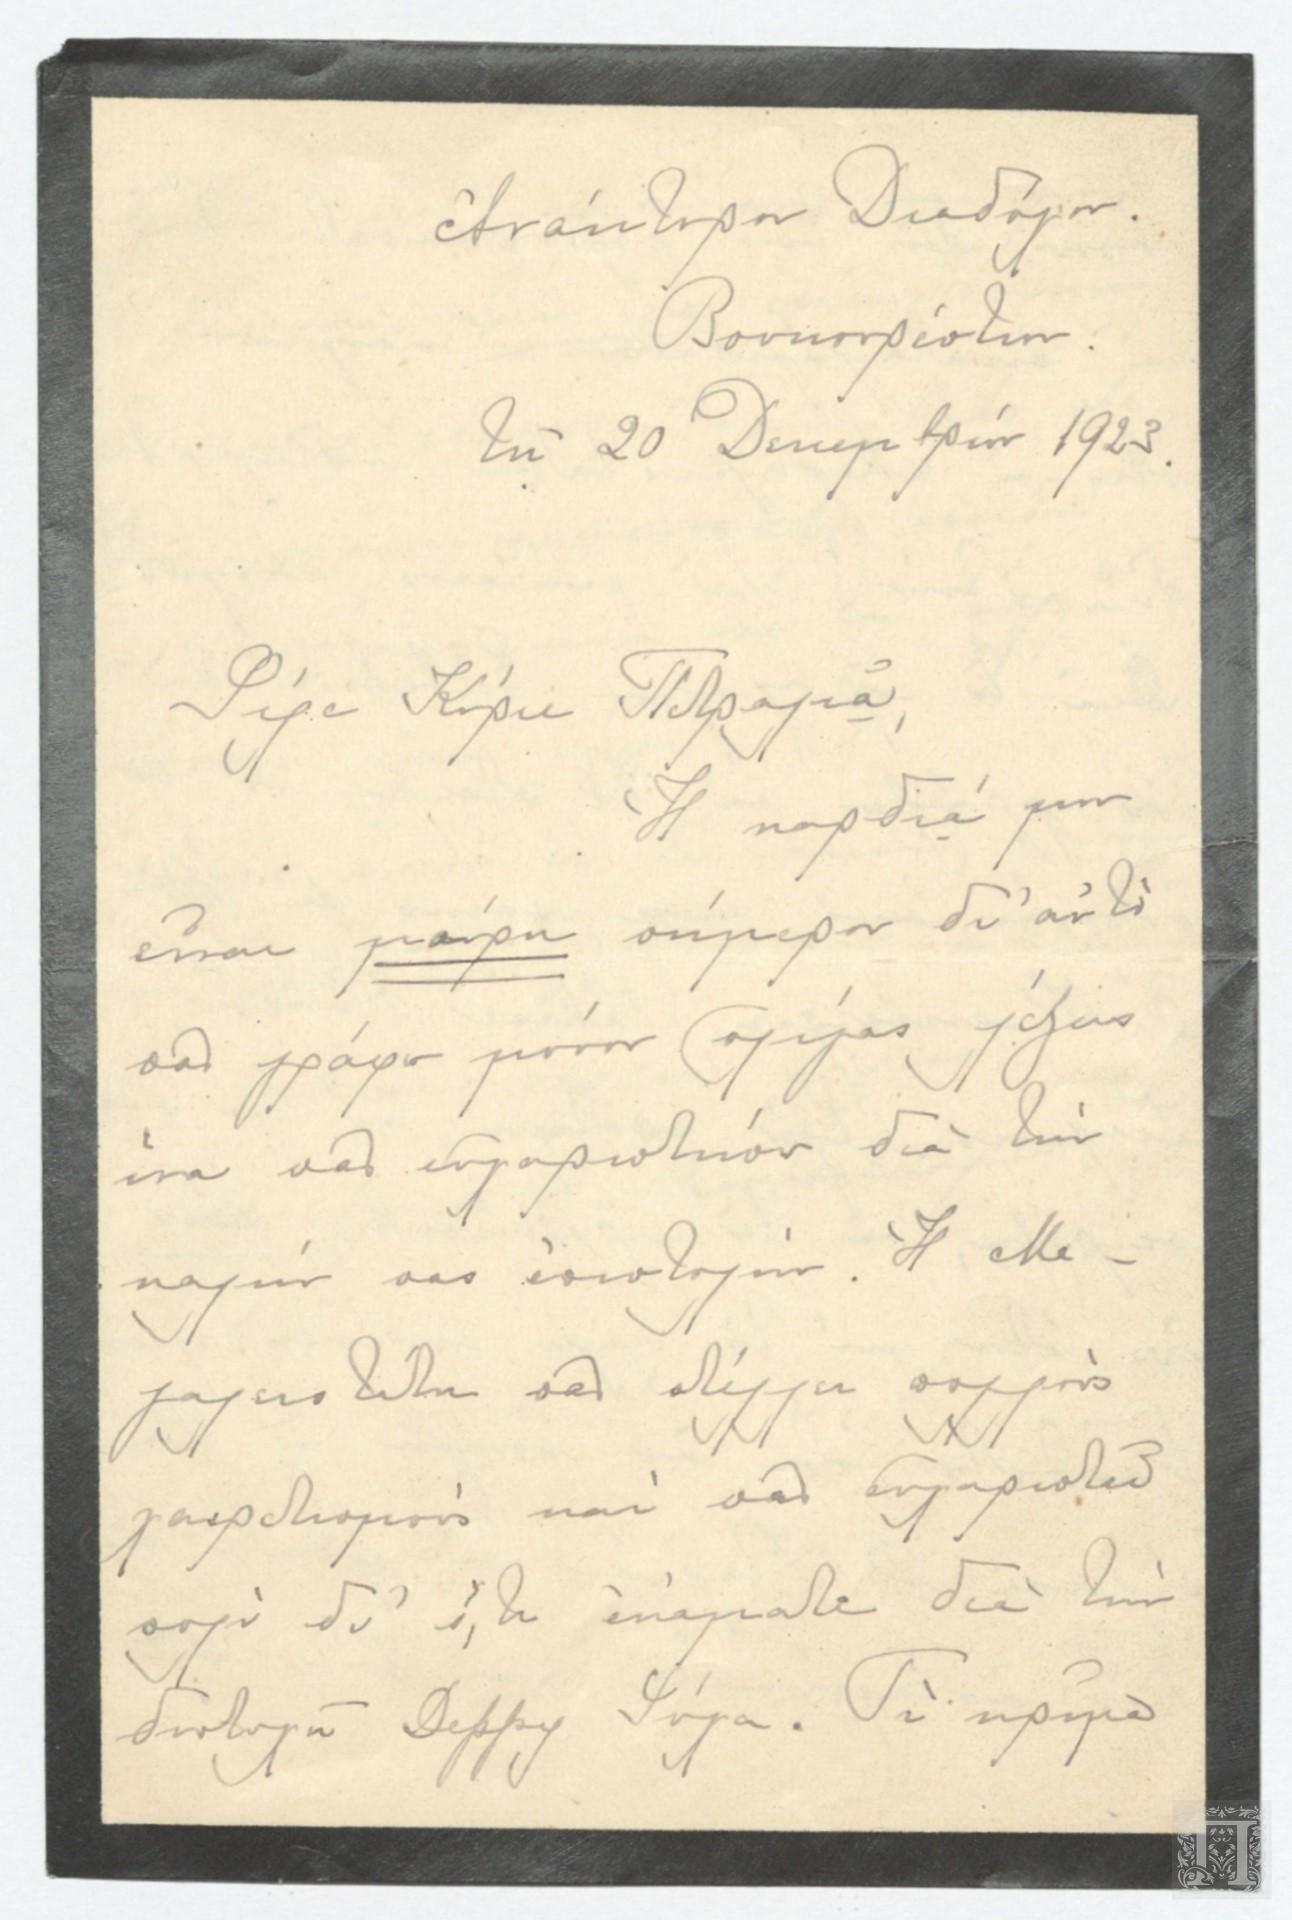 Ἀνάκτορον Διαδόχου.
Βουκουρέστιον.
τῇ 20 Δεκεμβρίου 1923.
Φίλε Κύριε Πετραλιᾶ,
Ἡ καρδιά μου
εἶναι μαύρη σήμερον δι' αὐτὸ
σᾶς γράφω μόνον ὀλίγας λέξεις
ἵνα σᾶς εὐχαριστήσω διὰ τὴν
καλήν σας ἐπιστολήν. Ἡ Με-
γαλειοτάτη σᾶς στέλλει πολλοὺς
χαιρετισμοὺς καὶ σᾶς εὐχαριστεῖ
πολὺ δι' ὅ,τι ἐκάματε διὰ τὴν
Τί κρῖμα